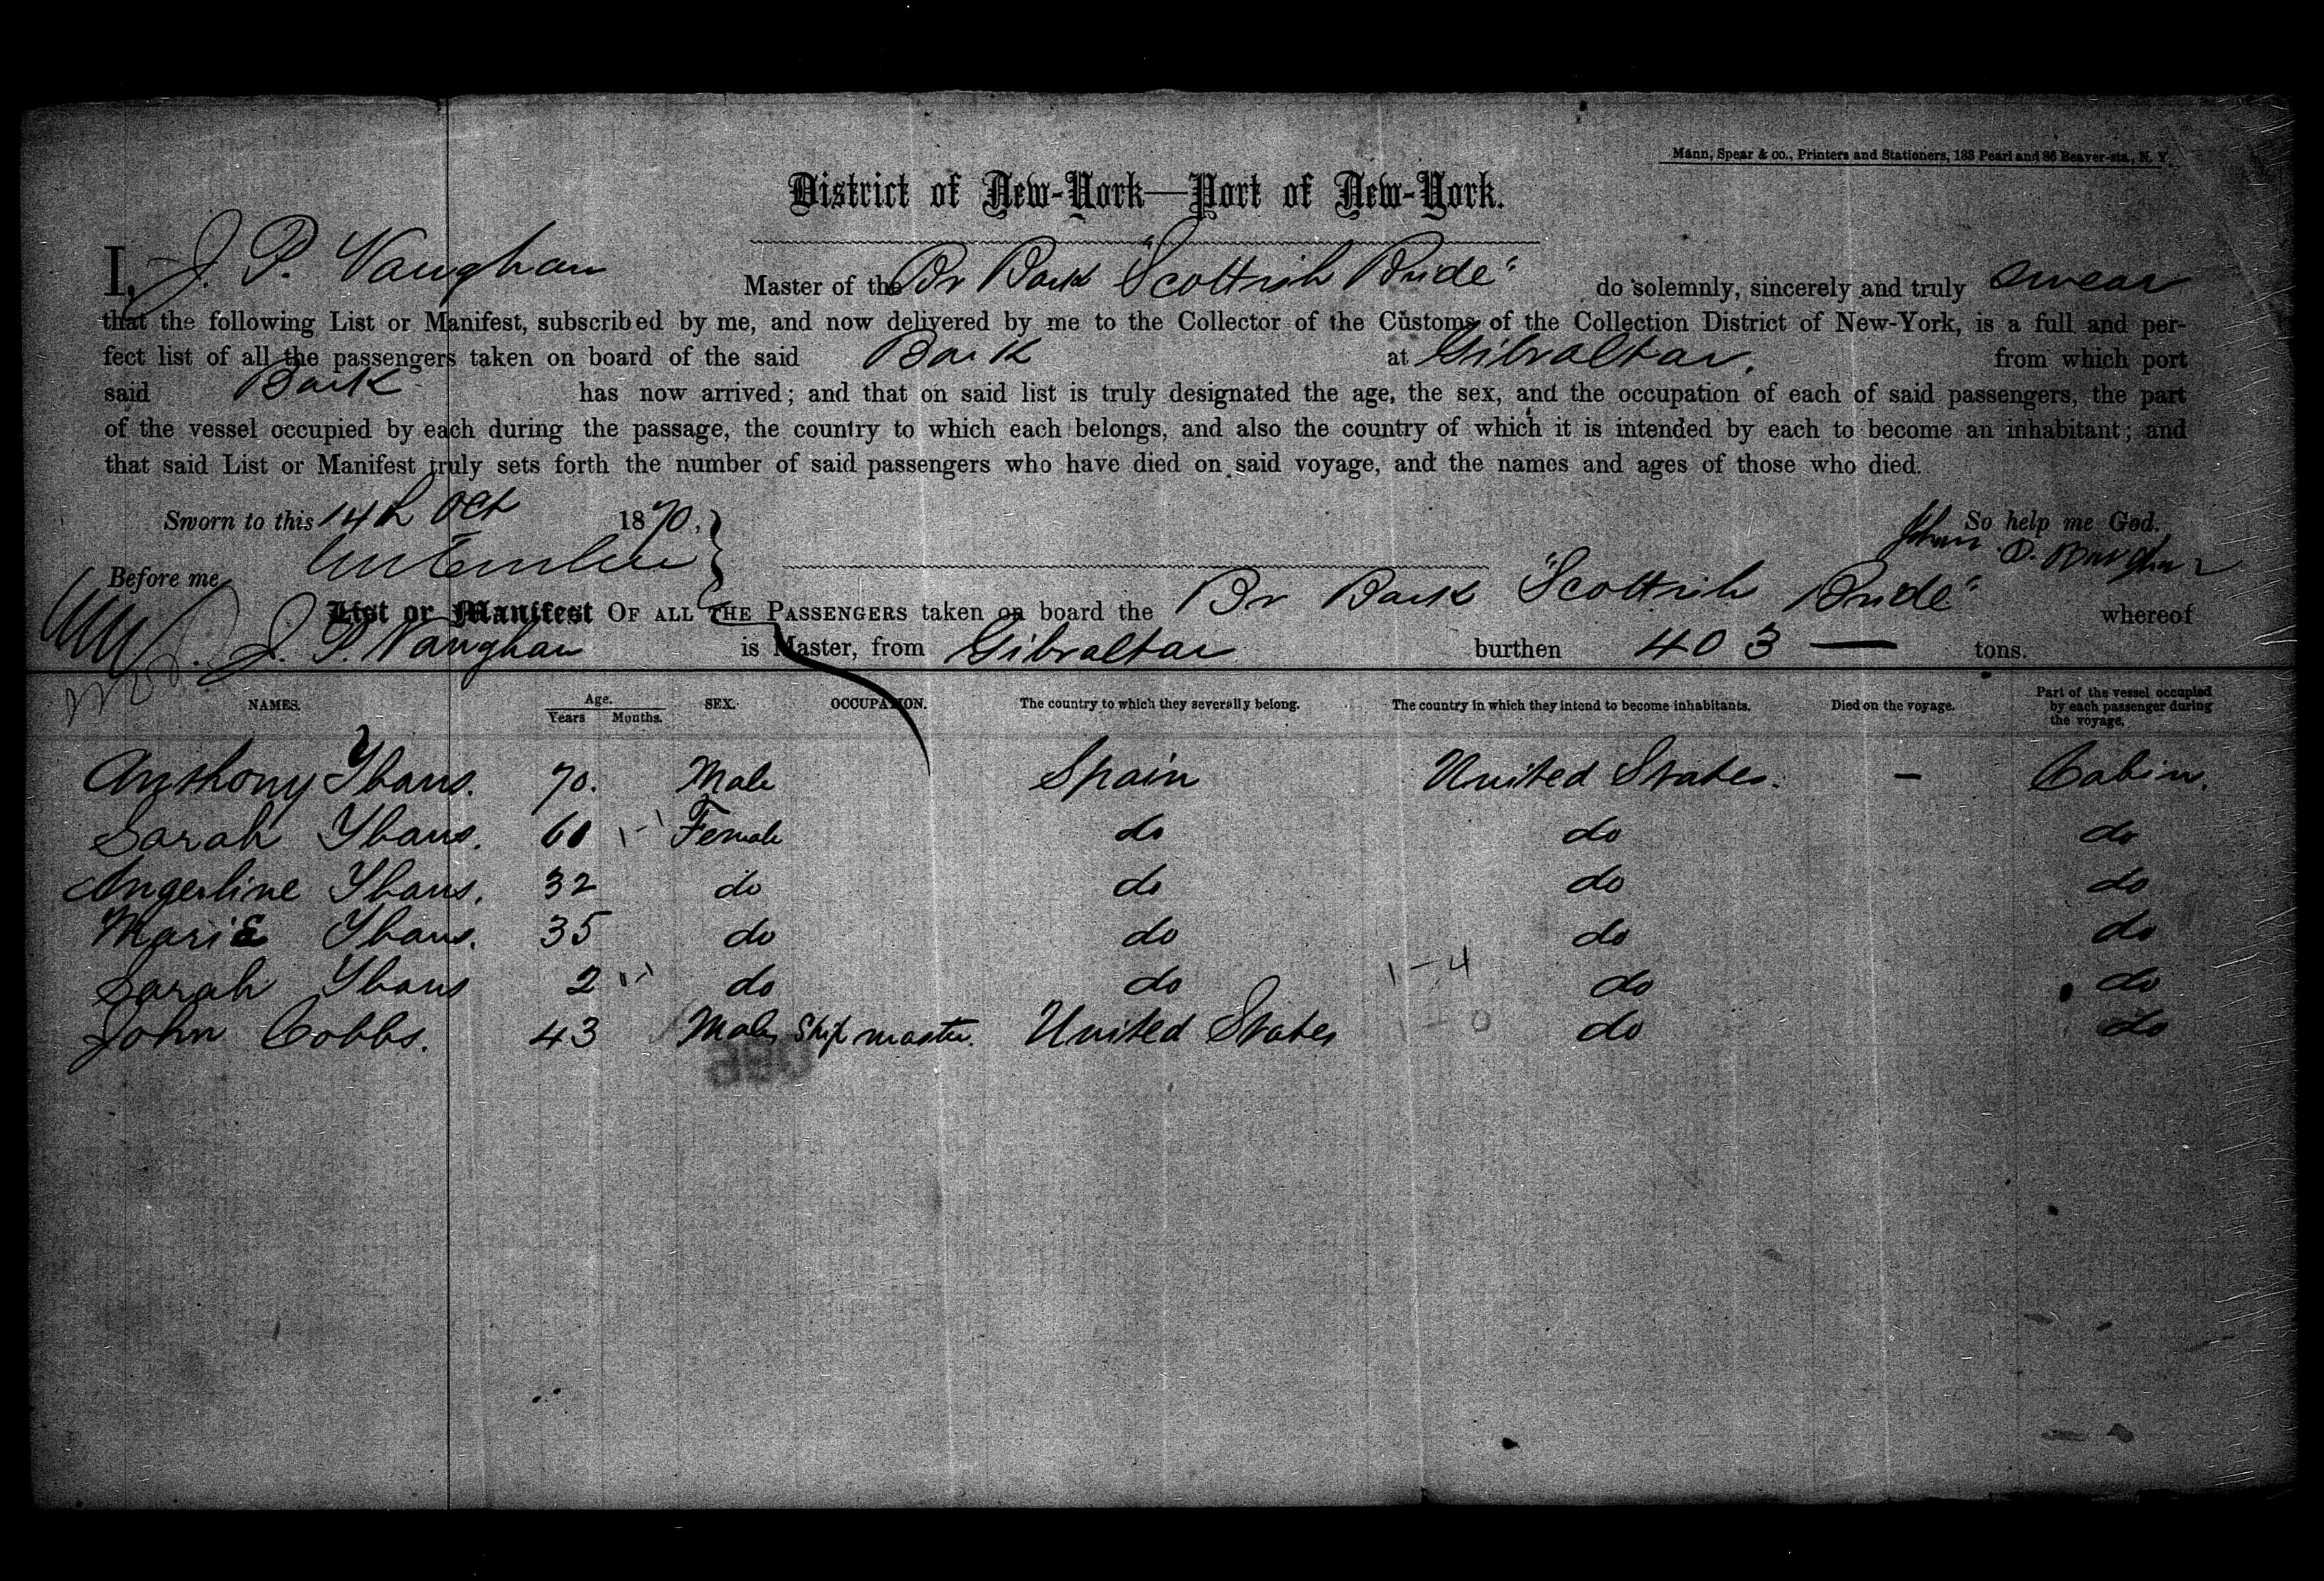 Mann, Spear & co., Printers and Stationers, 133 Pearl and 86 Beaver-sts., N. Y.
District of New-York—Port of New-York.
I, J. P. Vaughan Master of the Br Bark "Scottish Bride" do solemnly, sincerely and truly swear
that the following List or Manifest, subscribed by me, and now delivered by me to the Collector of the Customs of the Collection District of New-York, is a full and per-
fect list of all the passengers taken on board of the said Bark at Gibraltar, from which port
said Bark has now arrived; and that on said list is truly designated the age, the sex, and the occupation of each of said passengers, the part
of the vessel occupied by each during the passage, the country to which each belongs, and also the country of which it is intended by each to become an inhabitant; and
that said List or Manifest truly sets forth the number of said passengers who have died on said voyage, and the names and ages of those who died.
Sworn to this 14th Oct 1870, So help me God.
John P. Vaughan
Before me
List or Manifest OF ALL THE PASSENGERS taken on board the Br Bark "Scottish Bride" whereof
J. P. Vaughan is Master, from Gibraltar burthen 403 — tons.
NAMES. Age. Years Months. SEX. OCCUPATION. The country to which they severally belong. The country in which they intend to become inhabitants. Died on the voyage. Part of the vessel occupied by each passenger during the voyage.
Anthony Ybans. 70. Male Spain United States. — Cabin.
Sarah Ybans. 60 Female do do do
Angerline Ybans. 32 do do do do
Marie Ybans. 35 do do do do
Sarah Ybans 2 do do 1-4 do do
John Cobbs. 43 Male Ship master. United States 1-0 do do